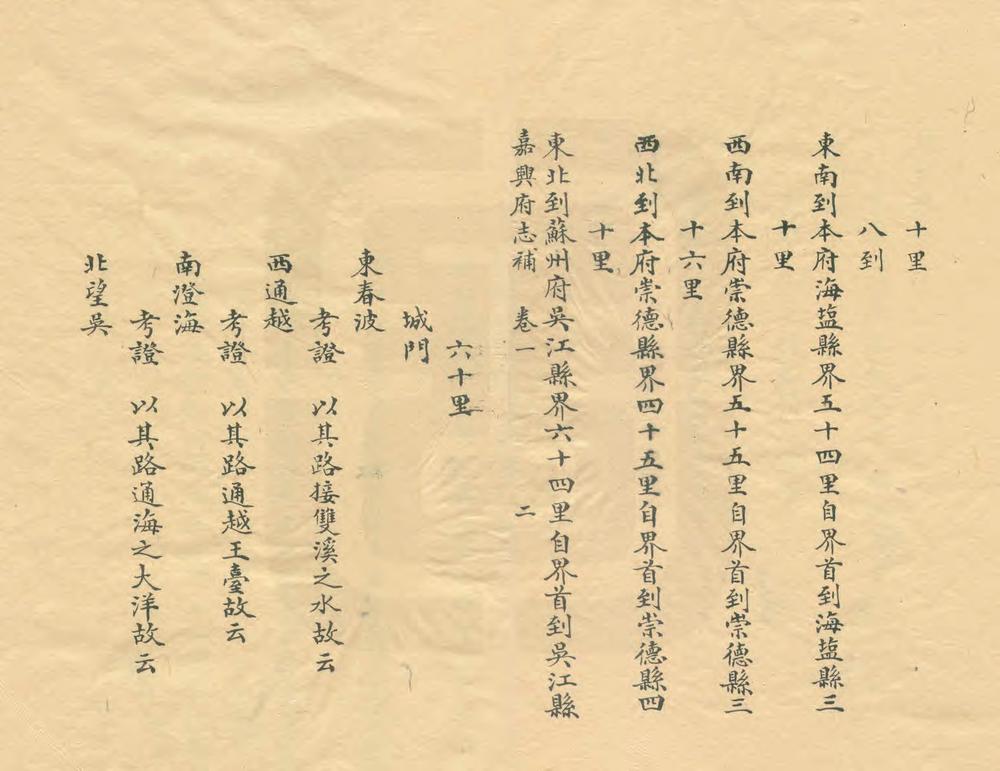 十里
八到
東南到本府海塩縣界五十四里自界首到海塩縣三
十里
西南到本府崇德縣界五十五里自界首到崇德縣三
十六里
西北到本府崇德縣界四十五里自界首到崇德縣四
十里
東北到蘇州府吳江縣界六十四里自界首到吳江縣
嘉興府志補 卷一 二
六十里
城門
東春波
考證 以其路接雙溪之水故云
西通越
考證 以其路通越王臺故云
南澄海
考證 以其路通海之大洋故云
北望吳